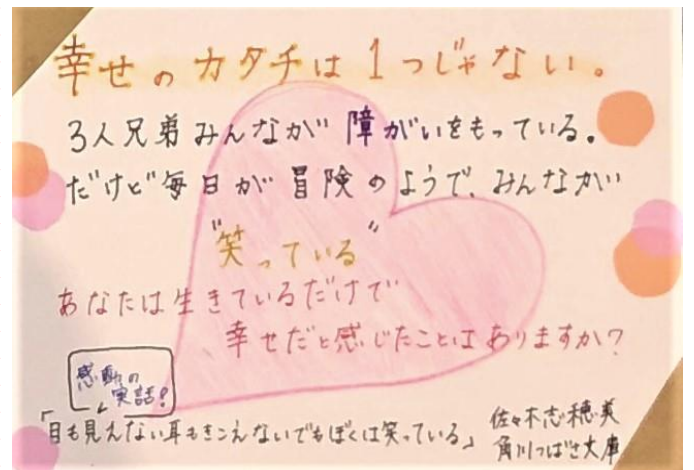 幸せのカタチは1つじゃない。
3人兄弟みんなが障がいをもっている。
だけど毎日が冒険のようで、みんなが
"笑っている"
あなたは生きているだけで
幸せだと感じたことはありますか?
感動の
実話!
「目も見えない耳もきこえないでもぼくは笑っている」
佐々木志穂美
角川つばさ文庫